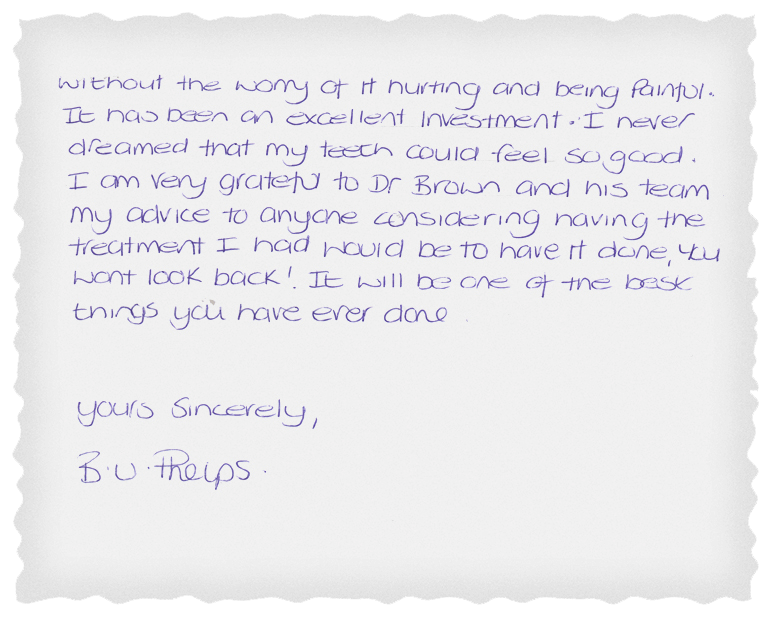 without the worry of it hurting and being Painful.
It has been an excellent Investment. I never
dreamed that my teeth could feel so good.
I am very grateful to Dr Brown and his team
My advice to anyone considering having the
treatment I had would be to have it done, you
wont look back! It will be one of the best
things you have ever done
yours Sincerely,
B.U.Phelps.